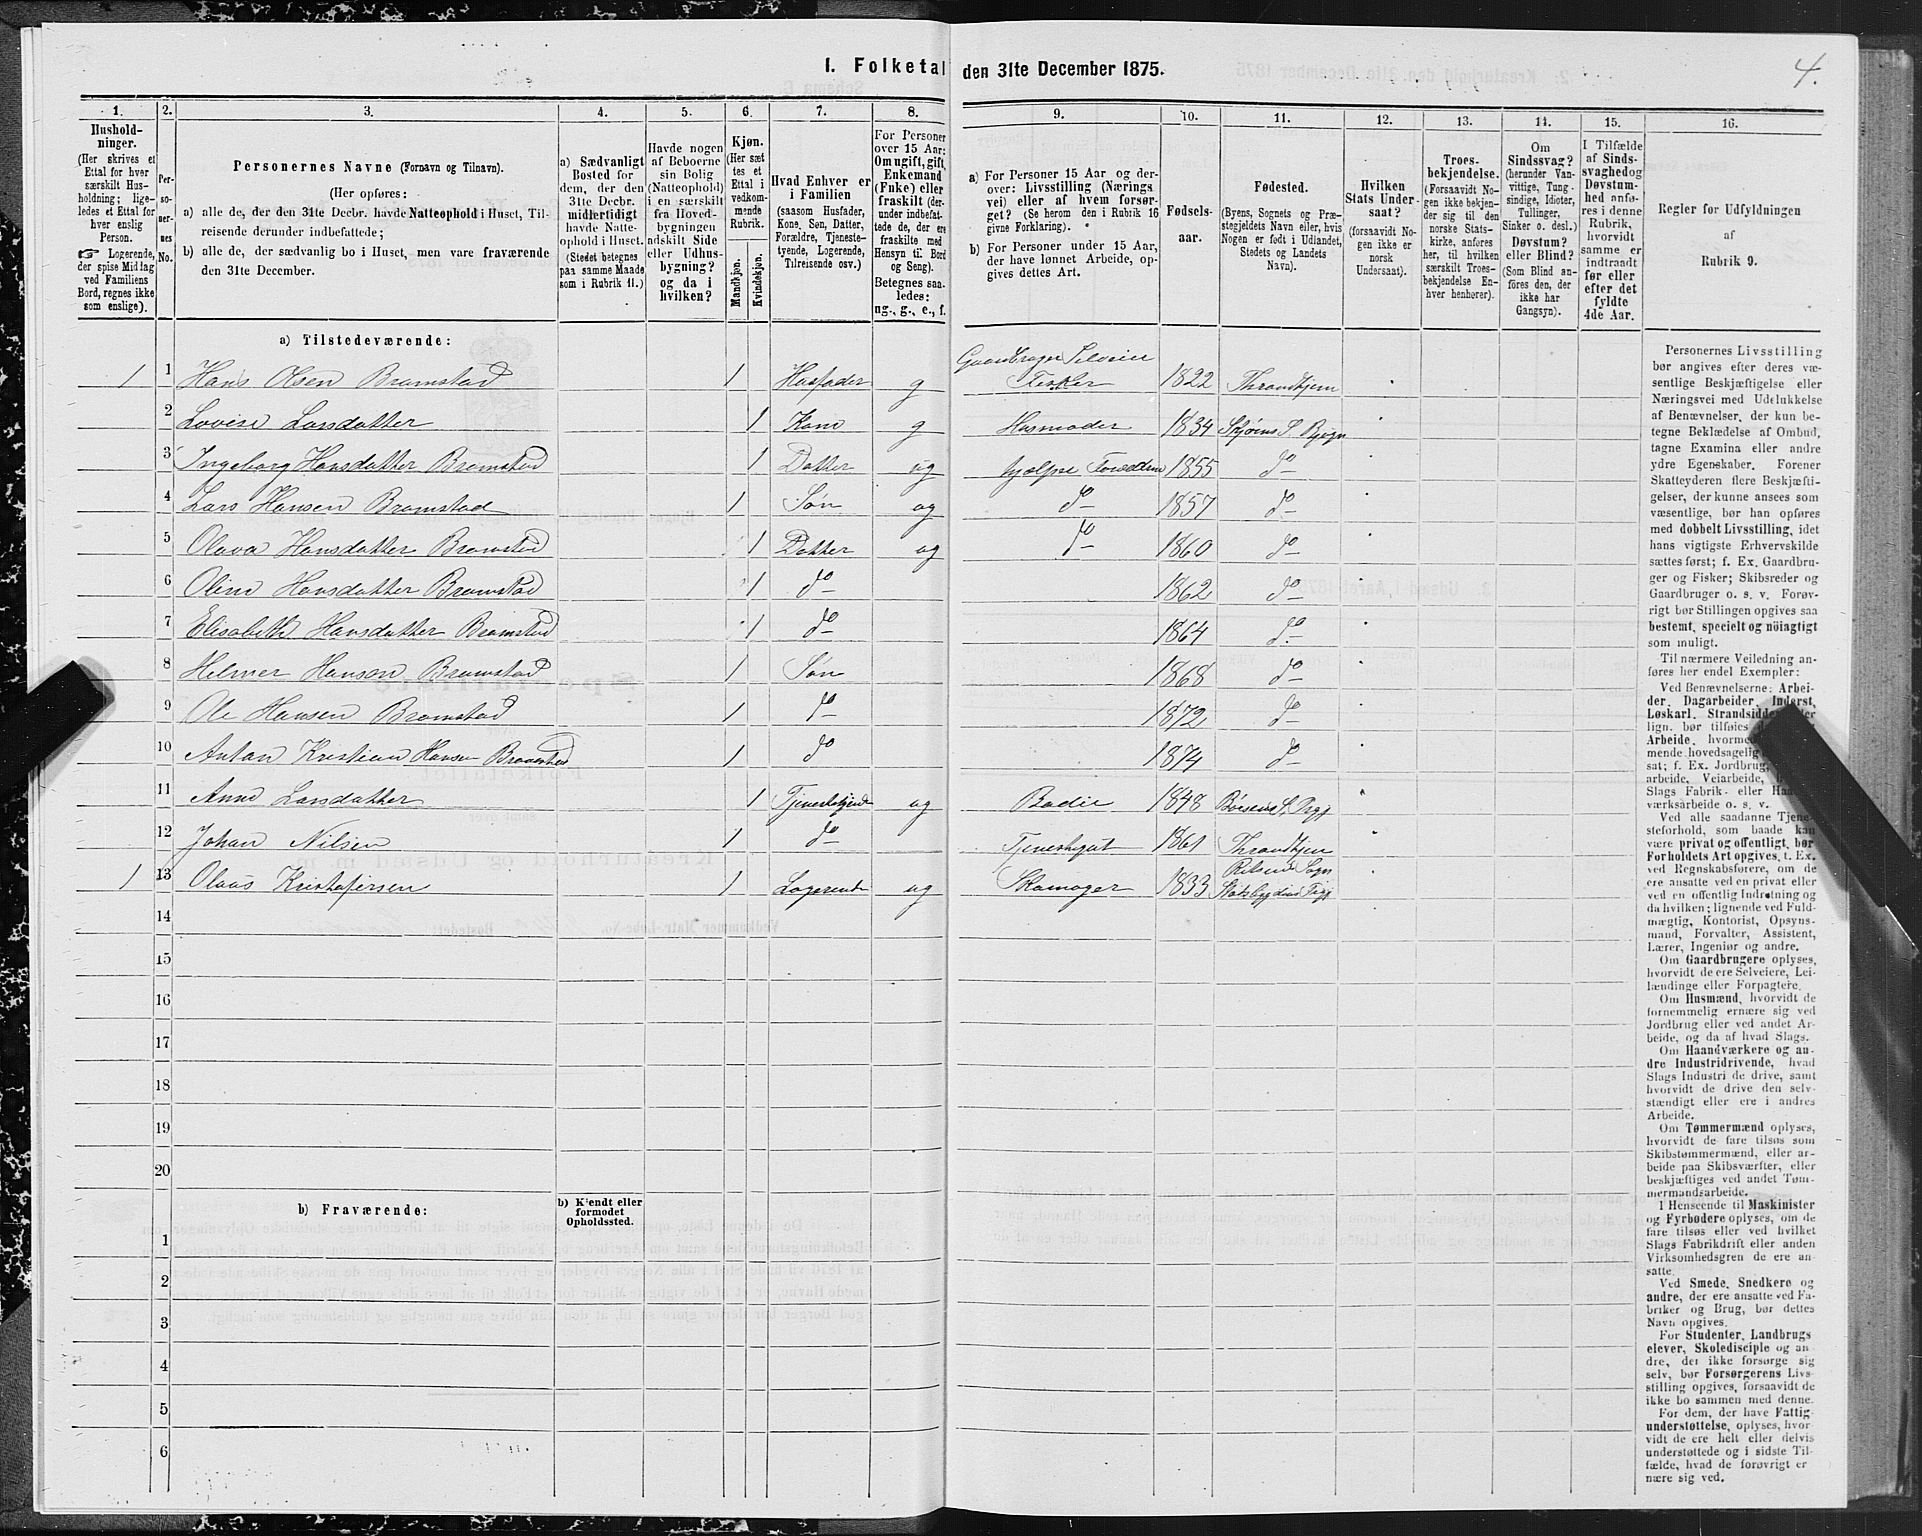 I. Folketal den 31te December 1875.
4.
1.
Husholdninger.
(Her skrives et
Ettal for hver
særskilt Husholdning; ligeledes et Ettal for
hver enslig
Person.
☞ Logerende,
der spise Middag
ved Familiens
Bord, regnes ikke
som enslige).
2.
Personernes
No.
3.
Personernes Navne (Fornavn og Tilnavn).
(Her opføres:
a) alle de, der den 31te Decbr. havde Natteophold i Huset, Tilreisende derunder indbefattede;
b) alle de, der sædvanlig bo i Huset, men vare fraværende
den 31te December.
4.
a) Sædvanligt
Bosted for
dem, der den
31te Decbr.
midlertidigt
havde Natteophold i Huset.
(Stedet betegnes
paa samme Maade
som i Rubrik 11.)
5.
Havde nogen
af Beboerne
sin Bolig
(Natteophold)
i en særskilt
fra Hovedbygningen
adskilt Side
eller Udhusbygning?
og da i
hvilken?
6.
Kjøn.
(Her sættes et
Ettal i
vedkommende
Rubrik.
Mandkjøn.
Kvindekjøn.
7.
Hvad Enhver er
i Familien
(saasom Husfader,
Kone, Søn, Datter,
Forældre, Tjenestetyende, Logerende,
Tilreisende osv.)
8.
For Personer
over 15 Aar:
Om ugift, gift,
Enkemand
(Enke) eller
fraskilt (derunder indbefattede de, der ere
fraskilte med
Hensyn til Bord
og Seng).
Betegnes saaledes:
ug., g., e., f.
9.
a) For Personer 15 Aar og derover: Livsstilling (Næringsvei) eller af hvem forsørget? (Se herom den i Rubrik 16
givne Forklaring).
b) For Personer under 15 Aar,
der have lønnet Arbeide, opgives dettes Art.
10.
Fødselsaar.
11.
Fødested.
(Byens, Sognets og Præstegjeldets Navn eller, hvis
Nogen er født i Udlandet,
Stedets og Landets
Navn).
12.
Hvilken
Stats Undersaat?
(forsaavidt Nogen ikke er
norsk
Undersaat).
13.
Troesbekjendelse.
(Forsaavidt Nogen ikke bekjender sig til den
norske Statskirke, anføres
her, til hvilken
særskilt Troesbekjendelse Enhver henhører).
14.
Om
Sindssvag?
(herunder Vanvittige, Tungsindige, Idioter,
Tullinger,
Sinker o. desl.)
Døvstum?
eller Blind?
(Som Blind anføres den, der
ikke har
Gangsyn).
15.
I Tilfælde
af Sindssvaghed og
Døvstumhed anføres i denne
Rubrik,
hvorvidt
samme er
indtraadt
før eller
efter det
fyldte
4de Aar.
16.
Regler for Udfyldningen
af
Rubrik 9.
a) Tilstedeværende:
1 1 Hans Olsen Bromstad 1 Husfader g Gaardbruger Selveier Fisker 1822 Throndhjem
2 Lovise Larsdatter 1 Kone g Husmoder 1834 Skjørens S. Bjugn
3 Ingeborg Hansdatter Bromstad 1 Datter ug hjælper Forældrene 1855 do
4 Lars Hansen Bromstad 1 Søn ug do 1857 do
5 Olava Hansdatter Bromstad 1 Datter ug do 1860 do
6 Oline Hansdatter Bromstad 1 do 1862 do
7 Elisabeth Hansdatter Bromstad 1 do 1864 do
8 Helmer Hansen Bromstad 1 Søn 1868 do
9 Ole Hansen Bromstad 1 do 1872 do
10 Anton Kristian Hansen Bromstad 1 do 1874 do
11 Anne Larsdatter 1 Tjenestetyende ug Budeie 1848
12 Johan Nilsen 1 do Tjenestegut 1861 Throndhjem
1 13 Olaus Kristofersen 1 Logerende ug Skomager 1833 Sogn
14
15
16
17
18
19
20
b) Fraværende:
b) Kjendt eller
formodet
Opholdssted.
1
2
3
4
5
6
Personernes Livsstilling
bør angives efter deres væsentlige Beskjæftigelse eller
Næringsvei med Udelukkelse
af Benævnelser, der kun betegne Beklædelse af Ombud,
tagne Examina eller andre
ydre Egenskaber. Forener
Skatteyderen flere Beskjæftigelser, der kunne ansees som
væsentlige, bør han opføres
med dobbelt Livsstilling, idet
hans vigtigste Erhvervskilde
sættes først; f. Ex. Gaardbruger og Fisker; Skibsreder og
Gaardbruger o. s. v. Forøvrigt bør Stillingen opgives saa
bestemt, specielt og nöiagtigt
som muligt.
Til nærmere Veiledning anføres her endel Exempler:
Ved Benævnelserne: Arbeider, Dagarbeider, Inderst,
Løskarl, Strandsidder
lign. bør tilføies
Arbeide,
sat; f. Ex. Jordbrug,
arbeide, Veiarbeide,
Slags Fabrik- eller
værksarbeide o. s. v.
Ved alle saadanne Tjenesteforhold, som baade kan
være privat og offentligt, bør
Forholdets Art opgives, t. Ex.
ved Regnskabsførere, om de
ere ansatte ved en privat eller
ved en offentlig Indretning og
da hvilken; lignende ved Fuldmægtig, Kontorist, Opsynsmand, Forvalter, Assistent,
Lærer, Ingeniør og andre.
Om Gaardbrugere oplyses,
hvorvidt de ere Selveiere, Leilændinge eller Forpagtere.
Om Husmænd, hvorvidt de
fornemmelig ernære sig ved
Jordbrug eller ved andet Arbeide, og da af hvad Slags.
Om Haandværkere og andre Industridrivende, hvad
Slags Industri de drive, samt
hvorvidt de drive den selvstændigt eller ere i andres
Arbeide.
Om Tømmermænd oplyses,
hvorvidt de fare tilsøs som
Skibstømmermænd, eller arbeide paa Skibsværfter, eller
beskjæftiges ved andet Tømmermandsarbeide.
I Henseende til Maskinister
og Fyrbødere oplyses, om de
fare tilsøs eller ved hvilket
Slags Fabrikdrift eller anden
Virksomhedsgren de ere ansatte.
Ved Smede, Snedkere og
andre, der ere ansatte ved Fabriker og Brug, bør dettes
Navn opgives.
For Studenter, Landbrugselever, Skoledisciple og andre, der ikke forsørge sig
selv, bør Forsørgerens Livsstilling opgives, forsaavidt de
ikke bo sammen med denne.
For dem, der have Fattigunderstøttelse, oplyses, hvorvidt de ere helt eller delvis
understøttede og i sidste Tilfælde, hvad de forøvrigt ernære sig ved.